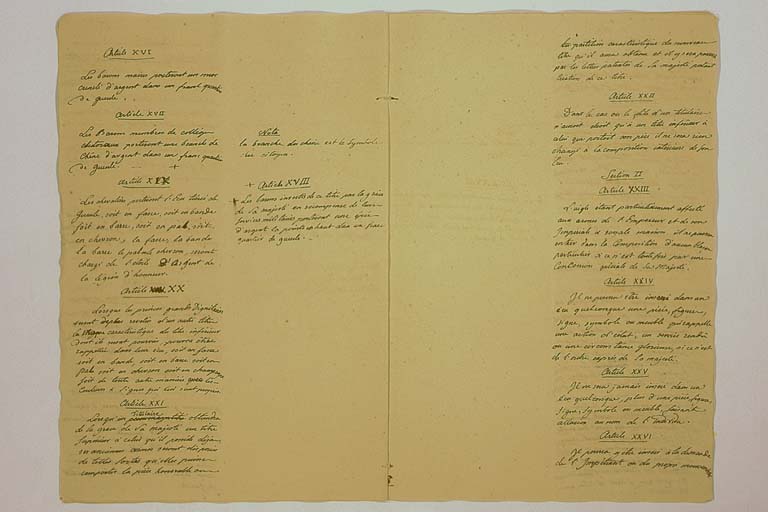 Article XVI
Les barons maires porteront un mur
crenelé d'argent dans un franc quartier
de gueule.
Article XVII
Les Barons membres de collège
electoraux porteront une branche de
chêne d'argent dans un franc quartier
de gueule. +
Nota
la branche de chêne est le symbole
Article XVIII
Les barons investis de ce titre par la grace
de Sa majesté en recompense de leurs
services militaires porteront une épée
d'argent la pointe en haut dans un franc
quartier de gueule.
Article XIX
Les chevaliers porteront l'Ecu tiercé de
Gueule, soit en fasce, soit en bande
soit en barre, soit en pal, soit
en chevron, la fasce, la bande
la barre le pal ou le chevron, seront
chargé de l'étoile d'argent de
la légion d'honneur.
Article XX
Lorsque les princes grands Dignitaires
seront déplus revetus d'un autre titre
caractéristique du titre inférieur
dont ils seront pourvus pourra etre
rappellée dans leur écu, soit en fasce
soit en bande, soit en barre soit en
pal soit en chevron soit en champagne
soit de toute autre manière avec les
Couleurs & signes qui lui sont propres
Article XXI
Lorsqu'un Titulaire obtiendra
de la grace de Sa majesté un titre
supérieur à celui qu'il possède déja
ses anciennes armes seront disposées
de telles sortes qu'elles puissent
comporter la pièce honorable ou
la partition caractéristique du nouveau
titre qu'il aura obtenu et il y sera pourvu
par les lettres patentes de Sa majesté portant
création de ce titre.
Article XXII
Dans le cas ou le fils d'un titulaire
n'auroit droit qu'à un titre inférieur à
celui que portoit son père il ne sera rien
changé à la composition intérieure de son
écu.
Section II
Article XXIII
L'aigle étant particulièrement affecté
aux armes de l'Empereur et de son
Imperiale & royale maison il ne pourra
entrer dans la Composition d'aucun blason
particulier si ce n'est toutefois par une
Concession spéciale de Sa Majesté.
Article XXIV
Il ne pourra être inseré dans un
écu quelconque une pièce, figure,
signe, symbole ou meuble qui rappelle
une action d'éclat, un service rendu
ou une circonstance glorieuse, si ce n'est
de l'ordre exprès de Sa majesté.
Article XXV
Il ne sera jamais inseré dans un
écu quelconque, plus d'une pièce, figure,
signe, symbole ou meuble, faisant
allusion au nom de l'individu.
Article XXVI
Il pourra y être inseré à la demande
de l'Impétrant ou du propre mouvement